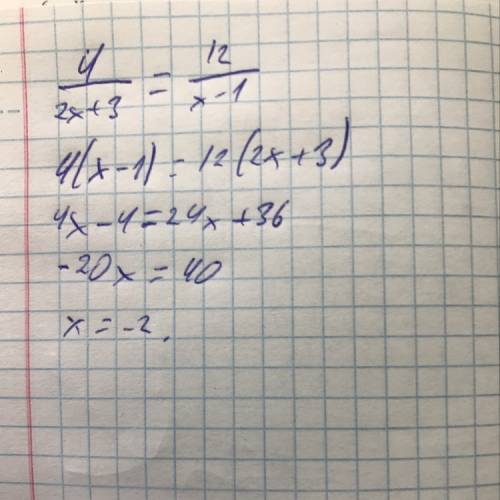 4/(2x+3) = 12/(x-1)
4(x-1) = 12(2x+3)
4x-4=24x+36
-20x = 40
x = -2.